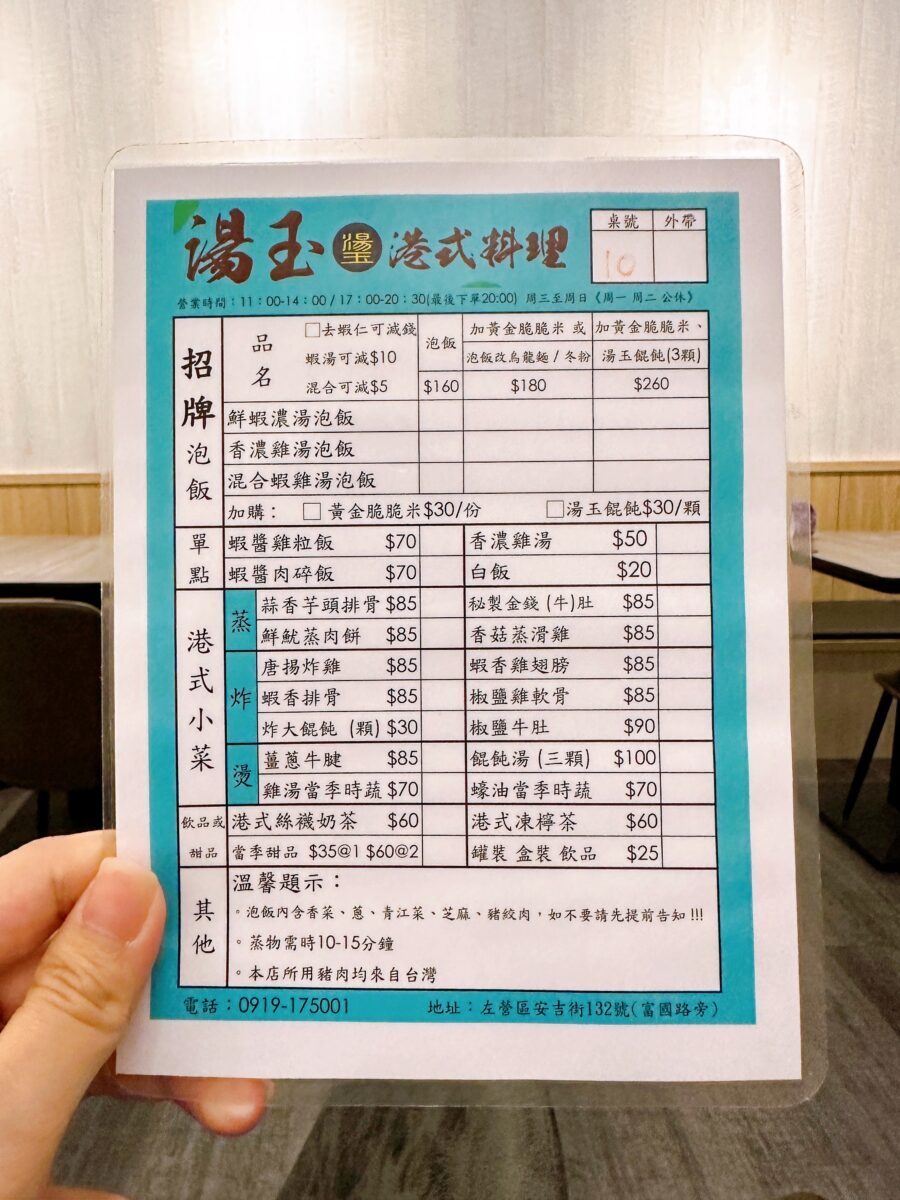 湯玉 湯玉 港式料理
桌號 外帶
10
營業時間：11：00-14：00 / 17：00-20：30(最後下單20:00) 周三至周日《周一 周二 公休》
招牌泡飯
品名
□去蝦仁可減錢
蝦湯可減$10
混合可減$5
泡飯
$160
加黃金脆脆米 或
泡飯改烏龍麵 / 冬粉
$180
加黃金脆脆米、
湯玉餛飩(3顆)
$260
鮮蝦濃湯泡飯
香濃雞湯泡飯
混合蝦雞湯泡飯
加購： □ 黃金脆脆米$30/份 □湯玉餛飩$30/顆
單點
蝦醬雞粒飯 $70 香濃雞湯 $50
蝦醬肉碎飯 $70 白飯 $20
港式小菜
蒸
蒜香芋頭排骨 $85 秘製金錢 (牛)肚 $85
鮮魷蒸肉餅 $85 香菇蒸滑雞 $85
炸
唐揚炸雞 $85 蝦香雞翅膀 $85
蝦香排骨 $85 椒鹽雞軟骨 $85
炸大餛飩 (顆) $30 椒鹽牛肚 $90
燙
薑蔥牛腱 $85 餛飩湯 (三顆) $100
雞湯當季時蔬 $70 蠔油當季時蔬 $70
飲品或
甜品
港式絲襪奶茶 $60 港式凍檸茶 $60
當季甜品 $35@1 $60@2 罐裝 盒裝 飲品 $25
其他
溫馨題示：
。泡飯內含香菜、蔥、青江菜、芝麻、豬絞肉，如不要請先提前告知 !!!
。蒸物需時10-15分鐘
。本店所用豬肉均來自台灣
電話：0919-175001 地址：左營區安吉街132號(富國路旁)